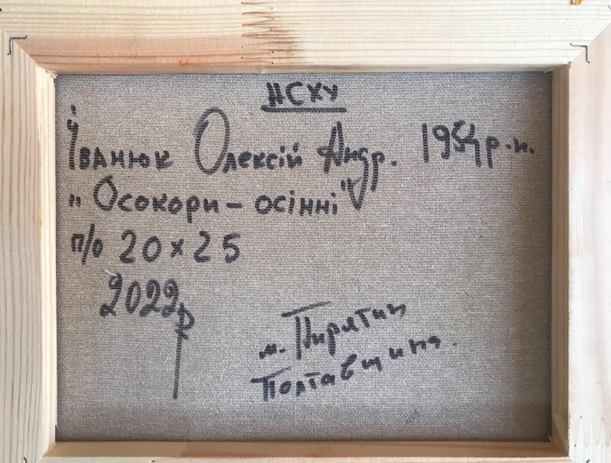 НСХУ
Іванюк Олексій Андр. 1954 р.н.
„Осокори – осінні"
п/о 20 x 25
2022р
м. Пирятин
Полтавщина.